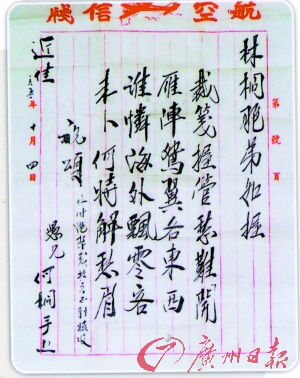 航空信牋
第 號 頁
林桐胞弟如握
裁箋握管愁難開
雁陣鴛翼各東西
誰憐海外飄零客
未卜何時解愁眉
頌
近佳
愚兄 何桐手上
年十月四日
廣州日報